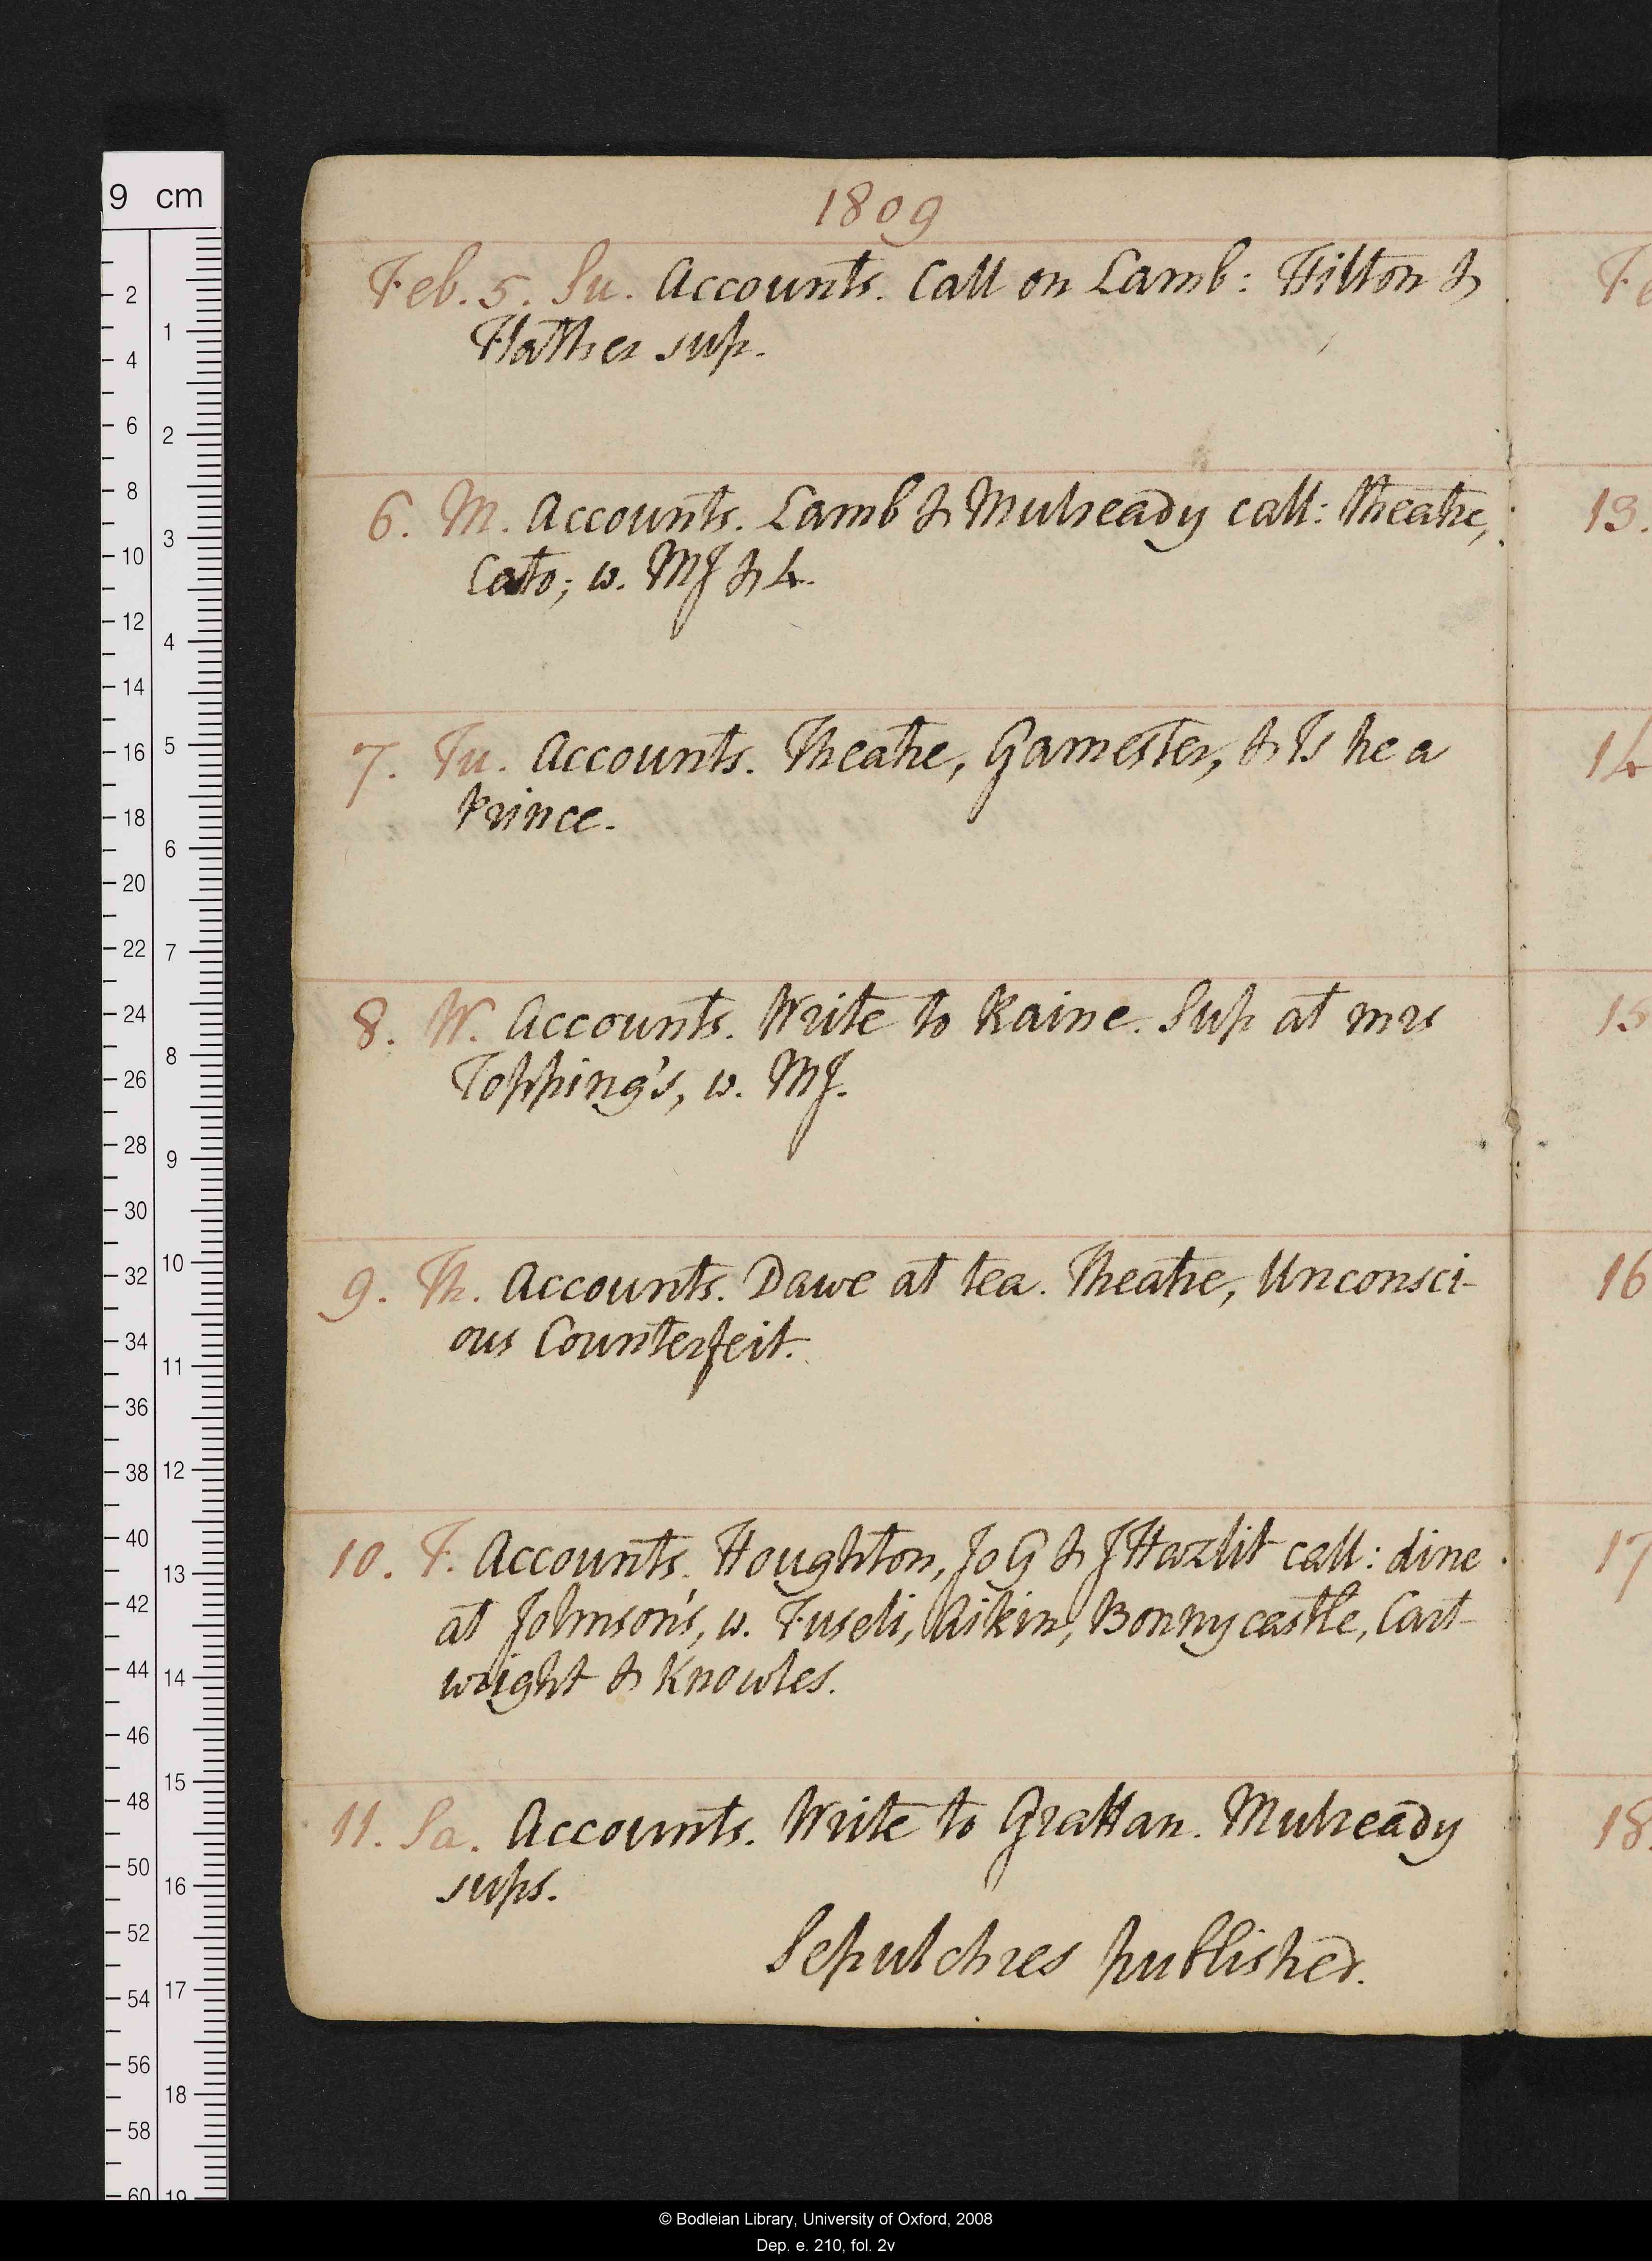 1809
Feb. 5. Su. Accounts. Call on Lamb: Hilton &
Hather sup.
6. M. Accounts. Lamb & Mulready call: theatre,
Cato; w. MJ & 4.
7. Tu. Accounts. Theatre, Gamester, & Is he a
Prince.
8. W. Accounts. Write to Raine. Sup at mrs
Topping's, w. MJ.
9. Th. Accounts. Dawe at tea. Theatre, Unconsci-
ous Counterfeit.
10. F. Accounts. Houghton, Jo G & J Hazlit call: dine
at Johnson's, w. Fuseli, Aikin, Bonnycastle, Cart-
wright & Knowles.
11. Sa. Accounts. Write to Grattan. Mulready
sups.
Sepulchres published.
Fe
13.
14
15
16
17
18.
9 cm
2
4
6
8
10
12
14
16
18
20
22
24
26
28
30
32
34
36
38
40
42
44
46
48
50
52
54
56
58
60
1
2
3
4
5
6
7
8
9
10
11
12
13
14
15
16
17
18
19
© Bodleian Library, University of Oxford, 2008
Dep. e. 210, fol. 2v